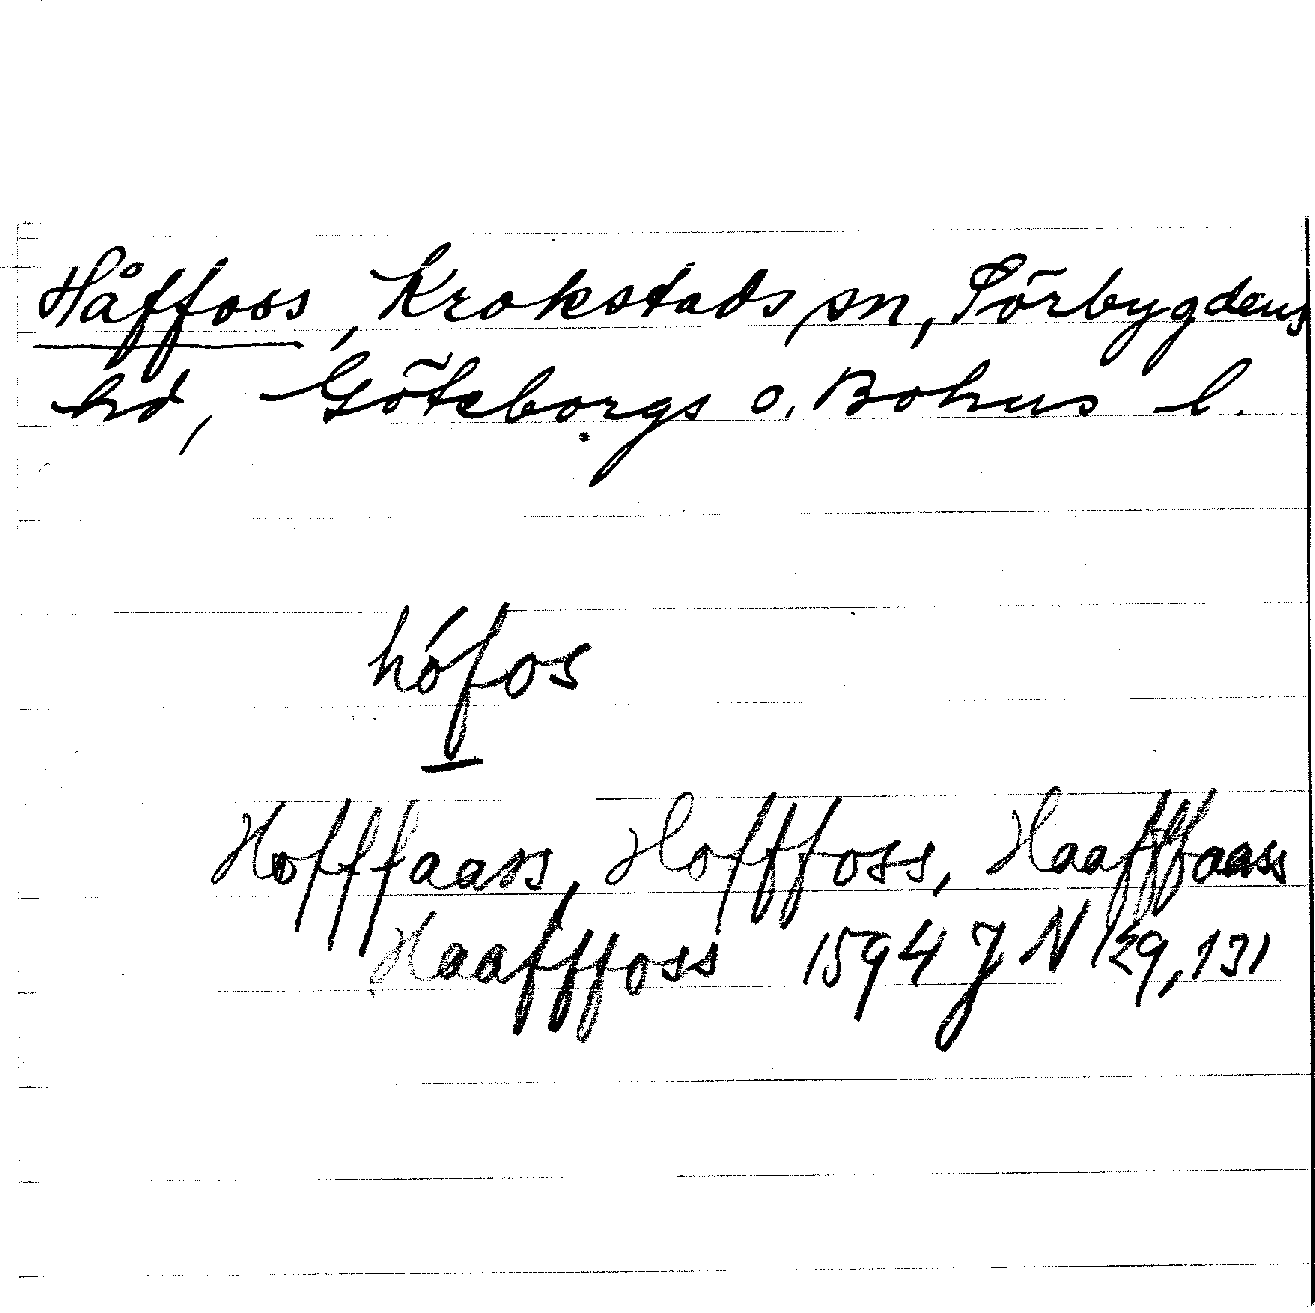 Håffoss, Krokstads sn, Sörbygdens
hd, Göteborgs o. Bohus l.
hófos
Hofffaass, Hofffoss, Haafffaass
Haafffoss 1594 J N 129, 131